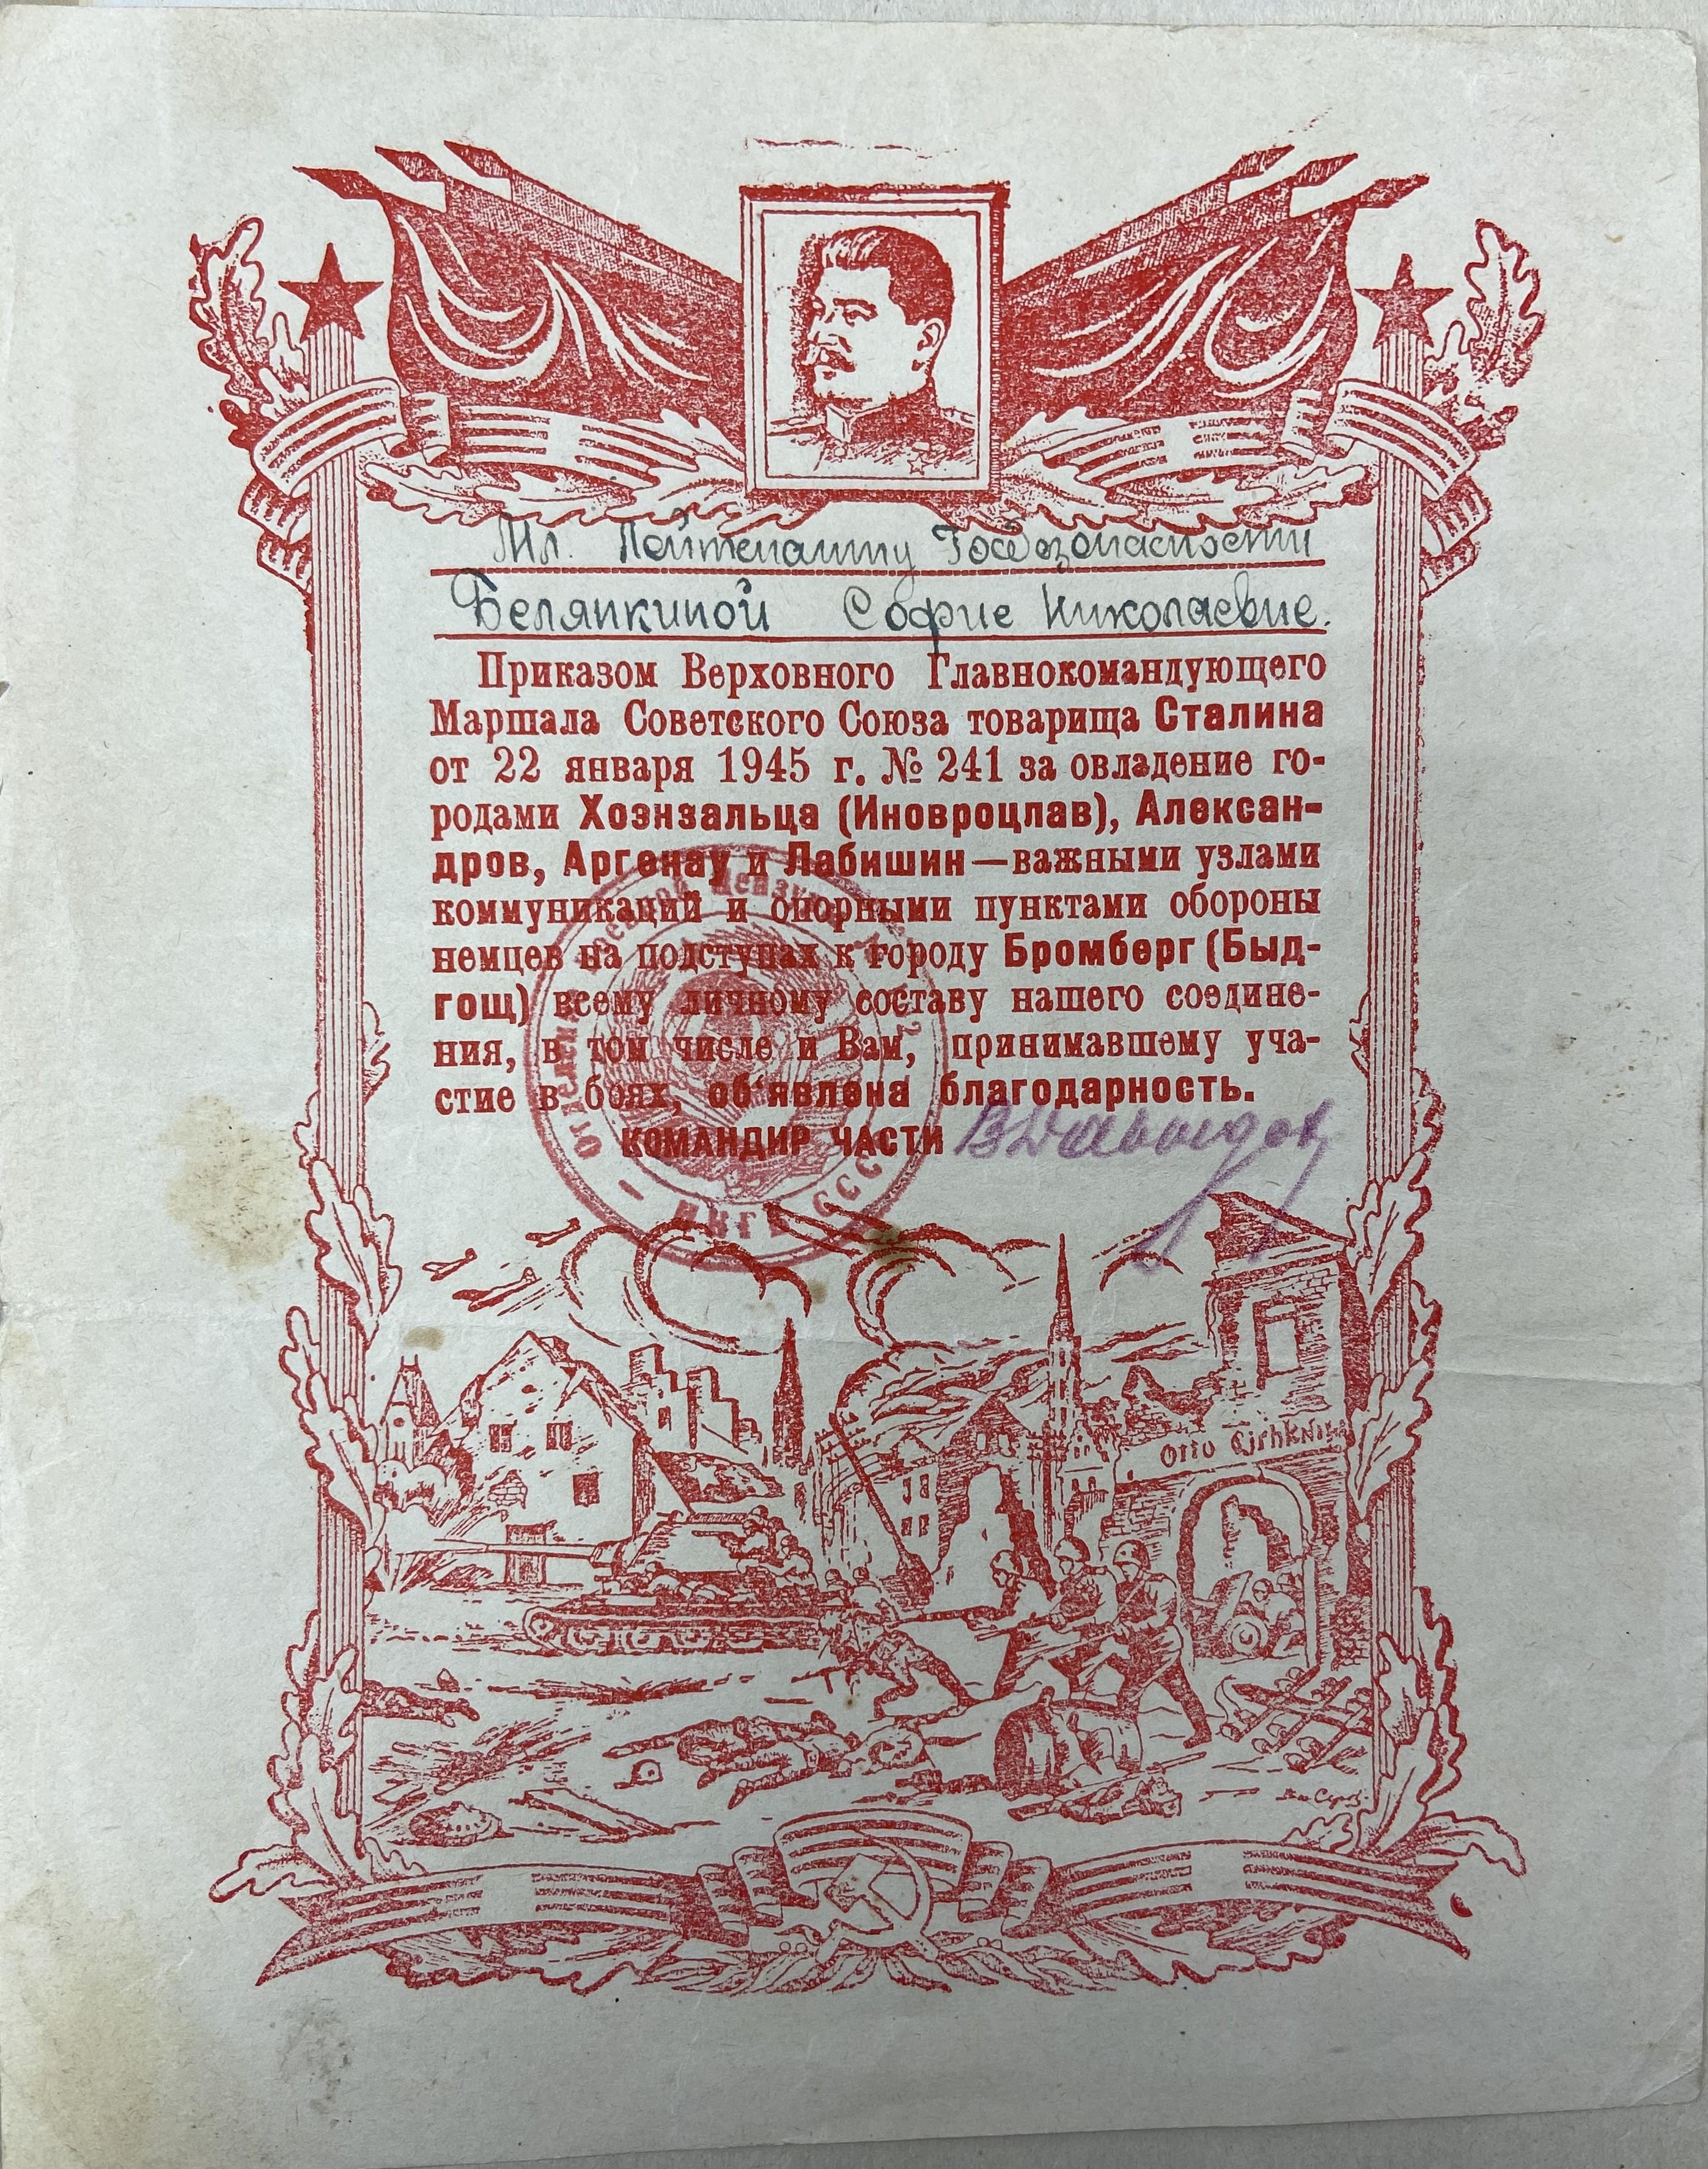 Мл. Лейтенанту Госбезопасности
Белянкиной Софие Николаевне.
Приказом Верховного Главнокомандующего
Маршала Советского Союза товарища Сталина
от 22 января 1945 г. № 241 за овладение го-
родами Хоэнзальца (Иновроцлав), Алексан-
дров, Аргенау и Лабишин — важными узлами
коммуникаций и опорными пунктами обороны
немцев на подступах к городу Бромберг (Быд-
гощ) всему личному составу нашего соедине-
ния, в том числе и Вам, принимавшему уча-
стие в боях, об'явлена благодарность.
КОМАНДИР ЧАСТИ ВДавыдов
НКГБ СССР
Otto